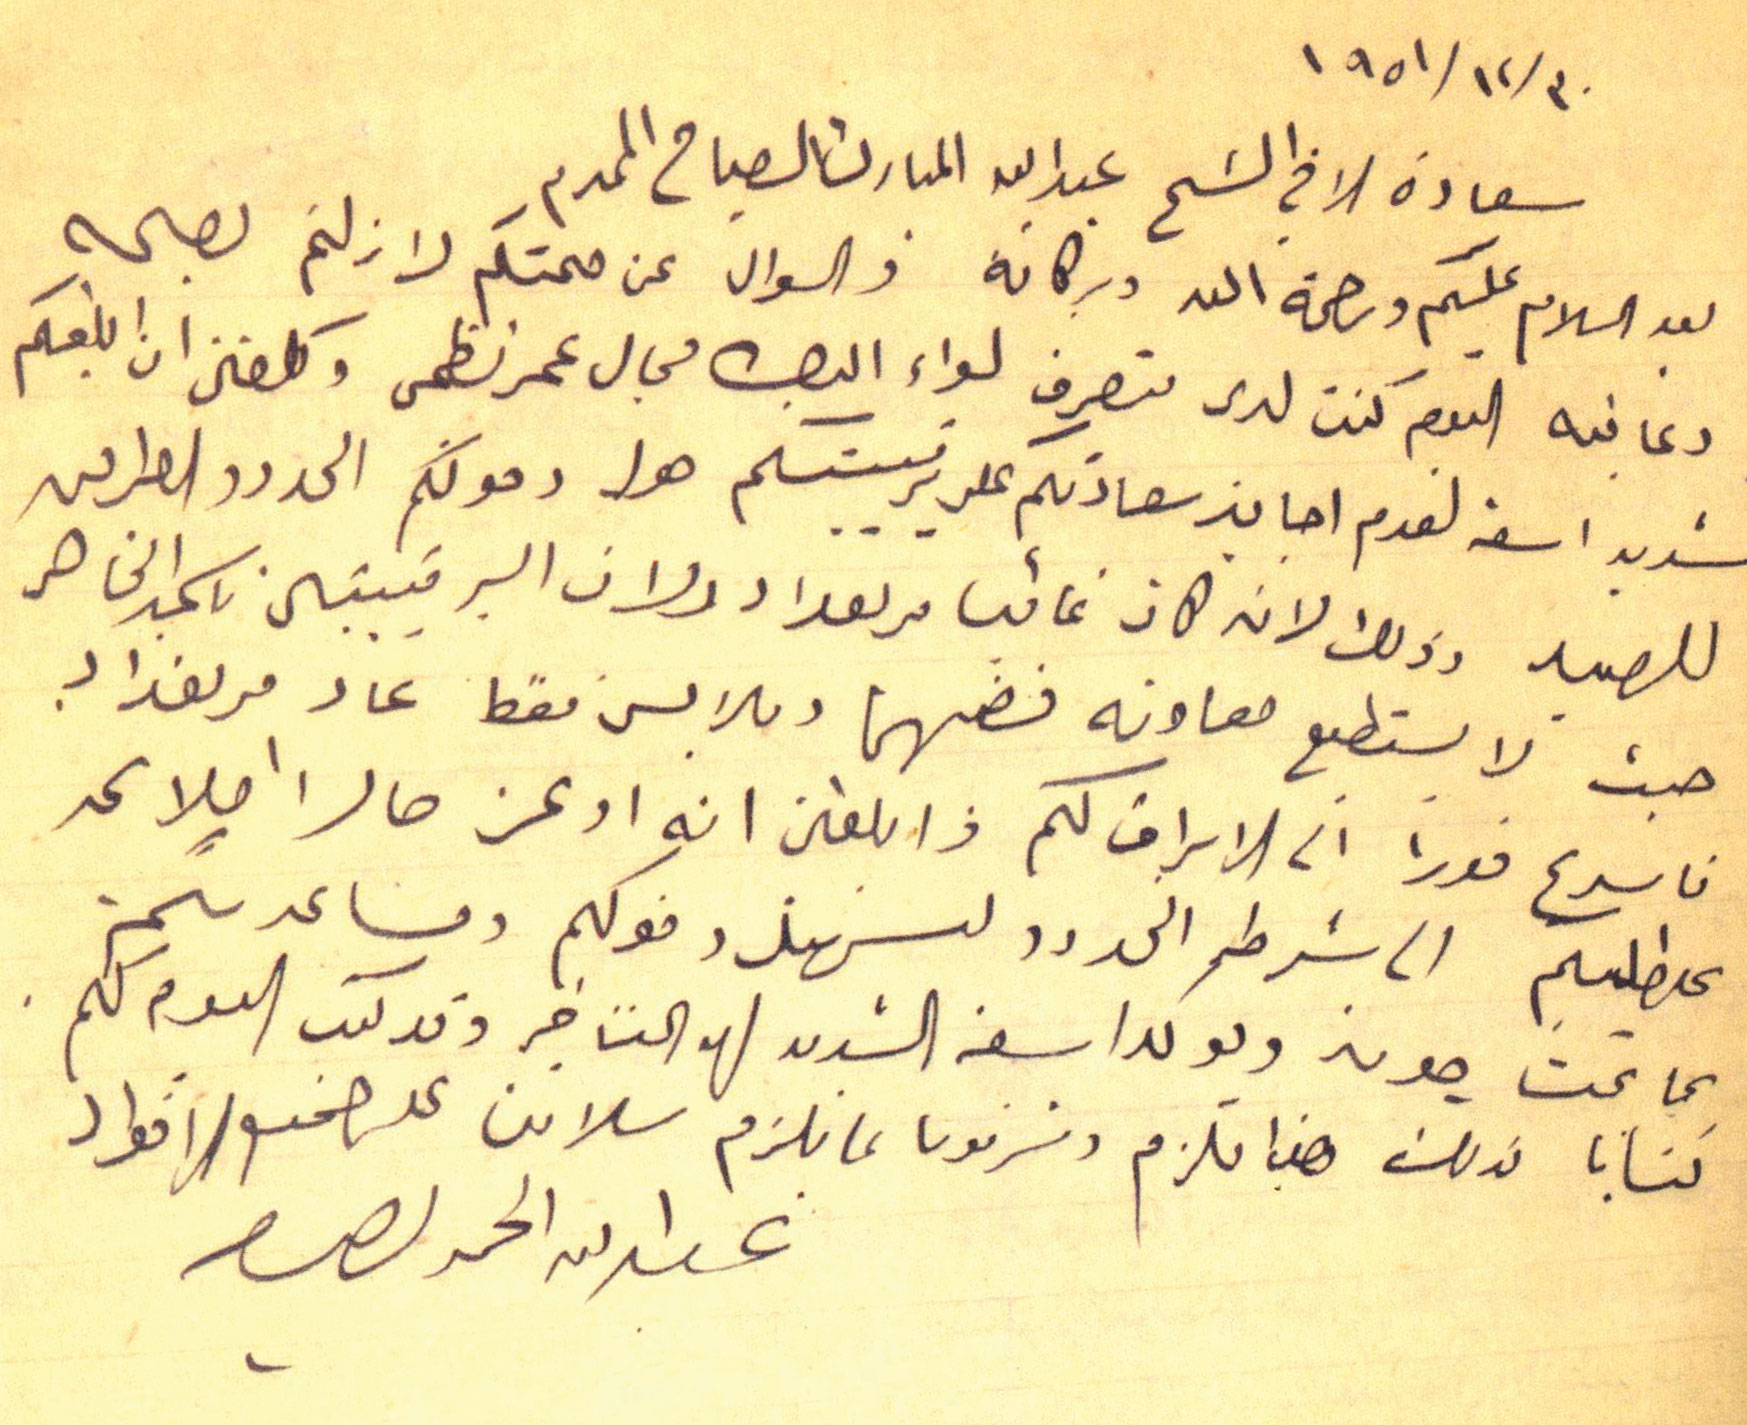 ١٩٥١/١٢/٣٠
سعادة الاخ الشيخ عبدالله المبارك الصباح المحترم
بعد السلام عليكم ورحمة الله وبركاته والسوال عن صحتكم لا زلتم بصحه
وعافيه اليوم كنت لدى متصرف لواء البصره جمال عمر نظمي وكلفني ان ابلغكم
شديد اسفه لعدم اجابته سعادتكم على برقيتكم حول دخولكم الحدود العراقيه
للصيد وذلك لانه كان غائبا في بغداد ولان البرقيتين
حيث لا يستطيع معاونه فضهما وبالامس فقط عاد من بغداد
فاسرع فورا الى الابراق لكم وابلغني انه اوعز حالا
على طلبكم الى شرطة الحدود لتسهيل دخولكم ومساعدتكم
بما تحتاجونه ويوكد اسفه الشديد لهذا التأخر وقد كتب اليوم لكم
كتابا بذلك هذا مالزم وشرفونا بما يلزم سلامي على جميع الافراد
عبدالله الحمد الصباح